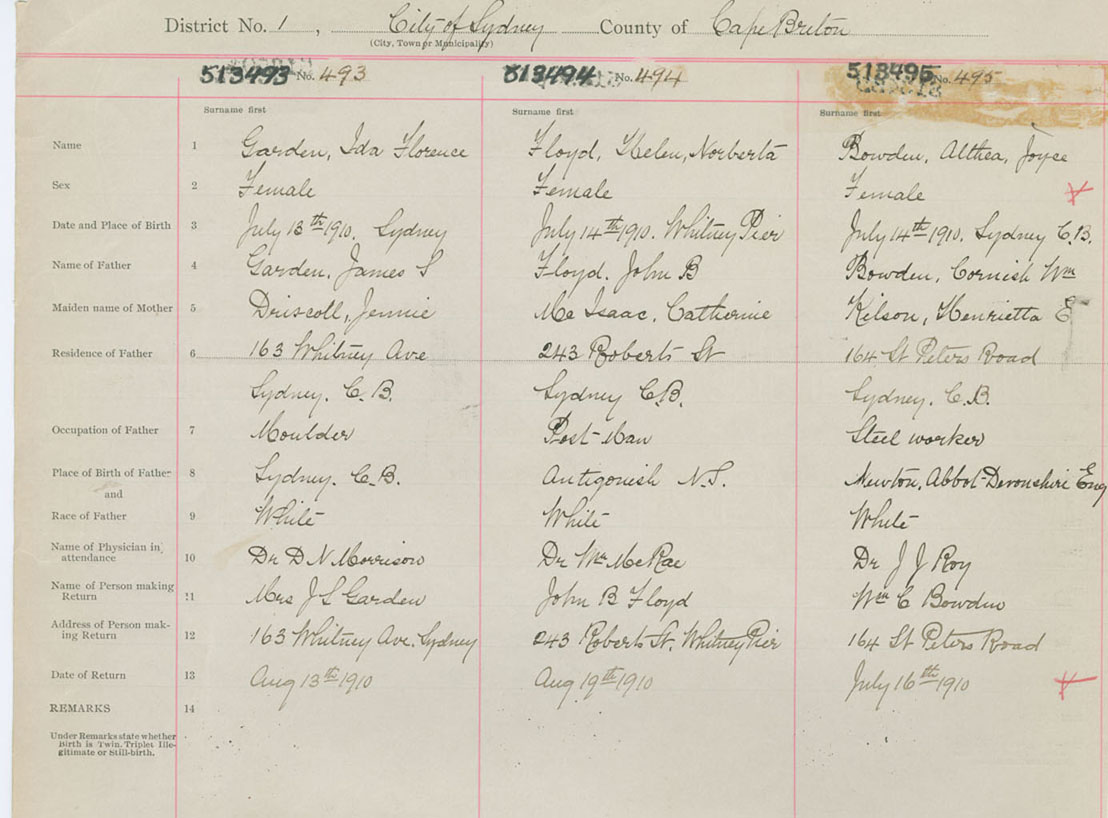 District No. 1, City of Sydney County of Cape Breton
(City, Town or Municipality)
513493 No. 493 513494 No. 494 513495 No. 495
Surname first Surname first Surname first
Name 1 Garden, Ida Florence Floyd, Helen, Norberta Bowden, Althea, Joyce
Sex 2 Female Female Female
Date and Place of Birth 3 July 13th 1910. Sydney July 14th 1910. Whitney Pier July 14th 1910. Sydney C.B.
Name of Father 4 Garden, James S Floyd. John B Bowden, Cornish Wm
Maiden name of Mother 5 Driscoll, Jennie Mc Isaac, Catherine Kilson, Henrietta E
Residence of Father 6 163 Whitney Ave 243 Roberts St 164 St Peters Road
Sydney. C.B. Sydney C.B. Sydney. C.B.
Occupation of Father 7 Moulder Post-Man Steel worker
Place of Birth of Father 8 Sydney. C.B. Antigonish N.S. Newton, Abbot-Devonshire Eng
and
Race of Father 9 White White White
Name of Physician in
attendance 10 Dr D N Morrison Dr Wm McRae Dr J J Roy
Name of Person making
Return 11 Mrs J S Garden John B Floyd Wm C Bowden
Address of Person mak-
ing Return 12 163 Whitney Ave. Sydney 243 Roberts St. Whitney Pier 164 St Peters Road
Date of Return 13 Aug 13th 1910 Aug 19th 1910 July 16th 1910
REMARKS 14
Under Remarks state whether
Birth is Twin. Triplet Ille-
gitimate or Still-birth.